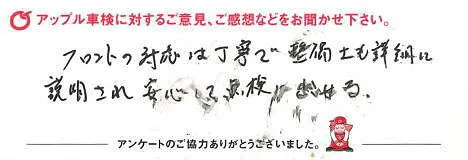 アップル車検に対するご意見、ご感想などをお聞かせ下さい。
フロントの対応は丁寧で整備士も詳細に
説明され安心して点検に出せる。
アンケートのご協力ありがとうございました。